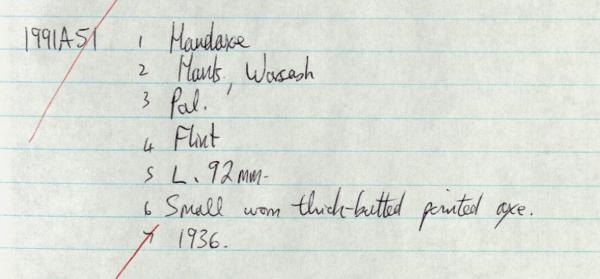 1991A51 1 Handaxe
2 Hants, Warsash
3 Pal.
4 Flint
5 L. 92mm.
6 Small worn thick-butted pointed axe.
7 1936.